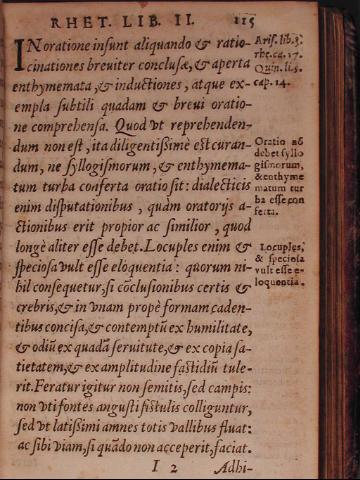 RHET. LIB. II. 115
IN oratione insunt aliquando & ratio-
cinationes breuiter conclusæ, & aperta
enthymemata, & inductiones, atque ex-
empla subtili quadam & breui oratio-
ne comprehensa. Quod vt reprehenden-
dum non est, ita diligentissimè est curan-
dum, ne syllogismorum, & enthymema-
tum turba conferta oratio sit: dialecticis
enim disputationibus, quàm oratorijs a-
ctionibus erit propior ac similior, quod
longè aliter esse debet. Locuples enim &
speciosa vult esse eloquentia: quorum ni-
hil consequetur, si cõclusionibus certis &
crebris, & in vnam propè formam caden-
tibus concisa, & contemptũ ex humilitate,
& odiũ ex quadã seruitute, & ex copia sa-
tietatem, & ex amplitudine fastidiũ tule-
rit. Feratur igitur non semitis, sed campis:
non vti fontes angusti fistulis colliguntur,
sed vt latissimi amnes totis vallibus fluat:
ac sibi viam, si quãdo non acceperit, faciat.
I 2 Adhi-
Aris. lib. 3.
rhe. ca. 17.
Quin. li. 5.
cap. 14.
Oratio nõ
debet syllo
gismorum,
& enthyme
matum tur
ba esse con
ferta.
Locuples,
& speciosa
vult esse e-
loquentia.